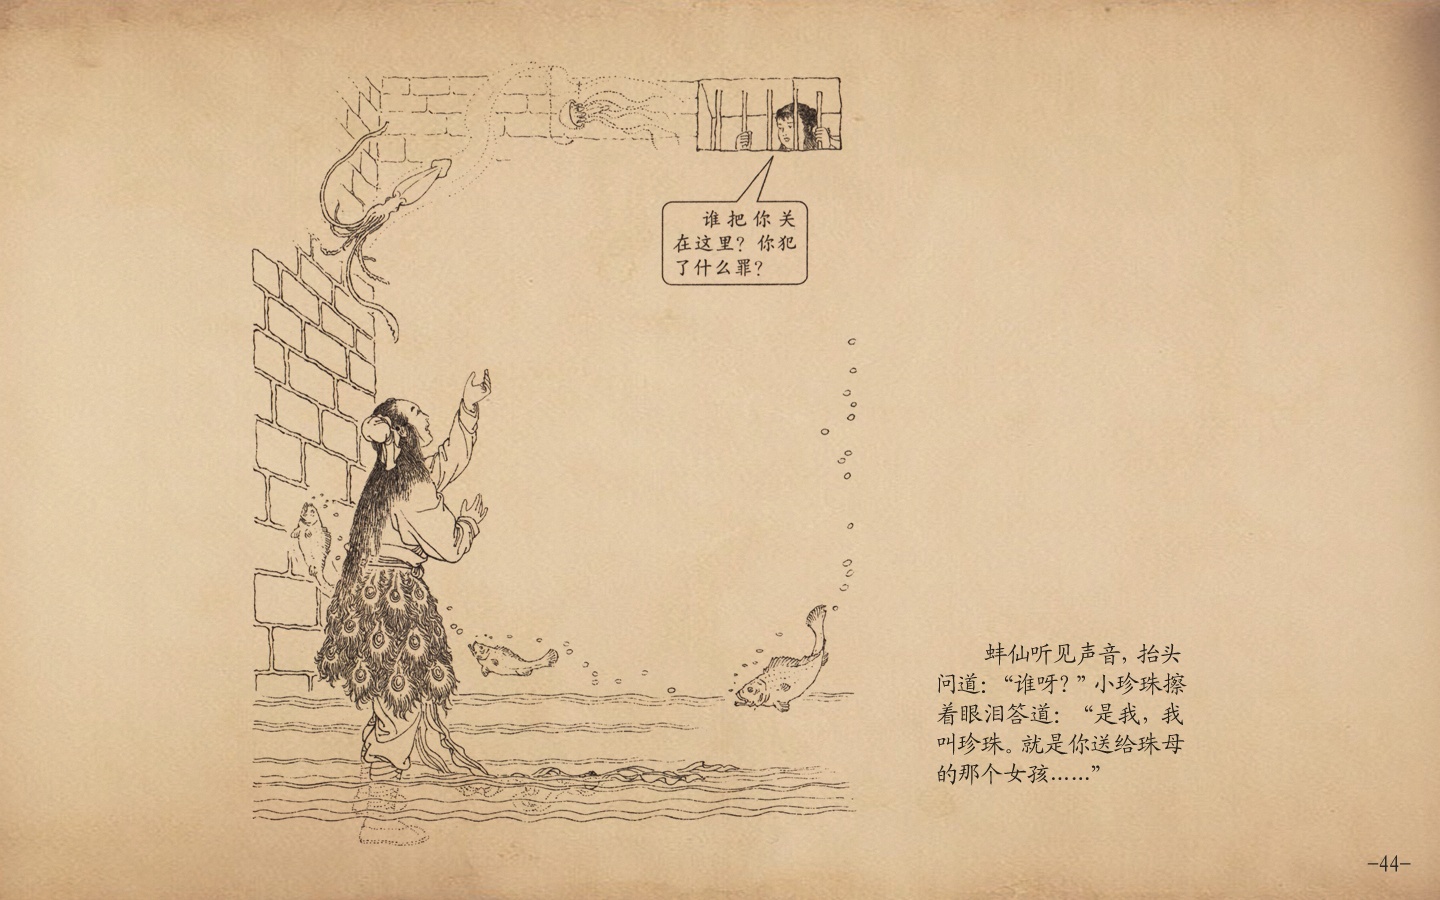 谁把你关
在这里？你犯
了什么罪？
蚌仙听见声音，抬头
问道：“谁呀？”小珍珠擦
着眼泪答道：“是我，我
叫珍珠。就是你送给珠母
的那个女孩……”
-44-